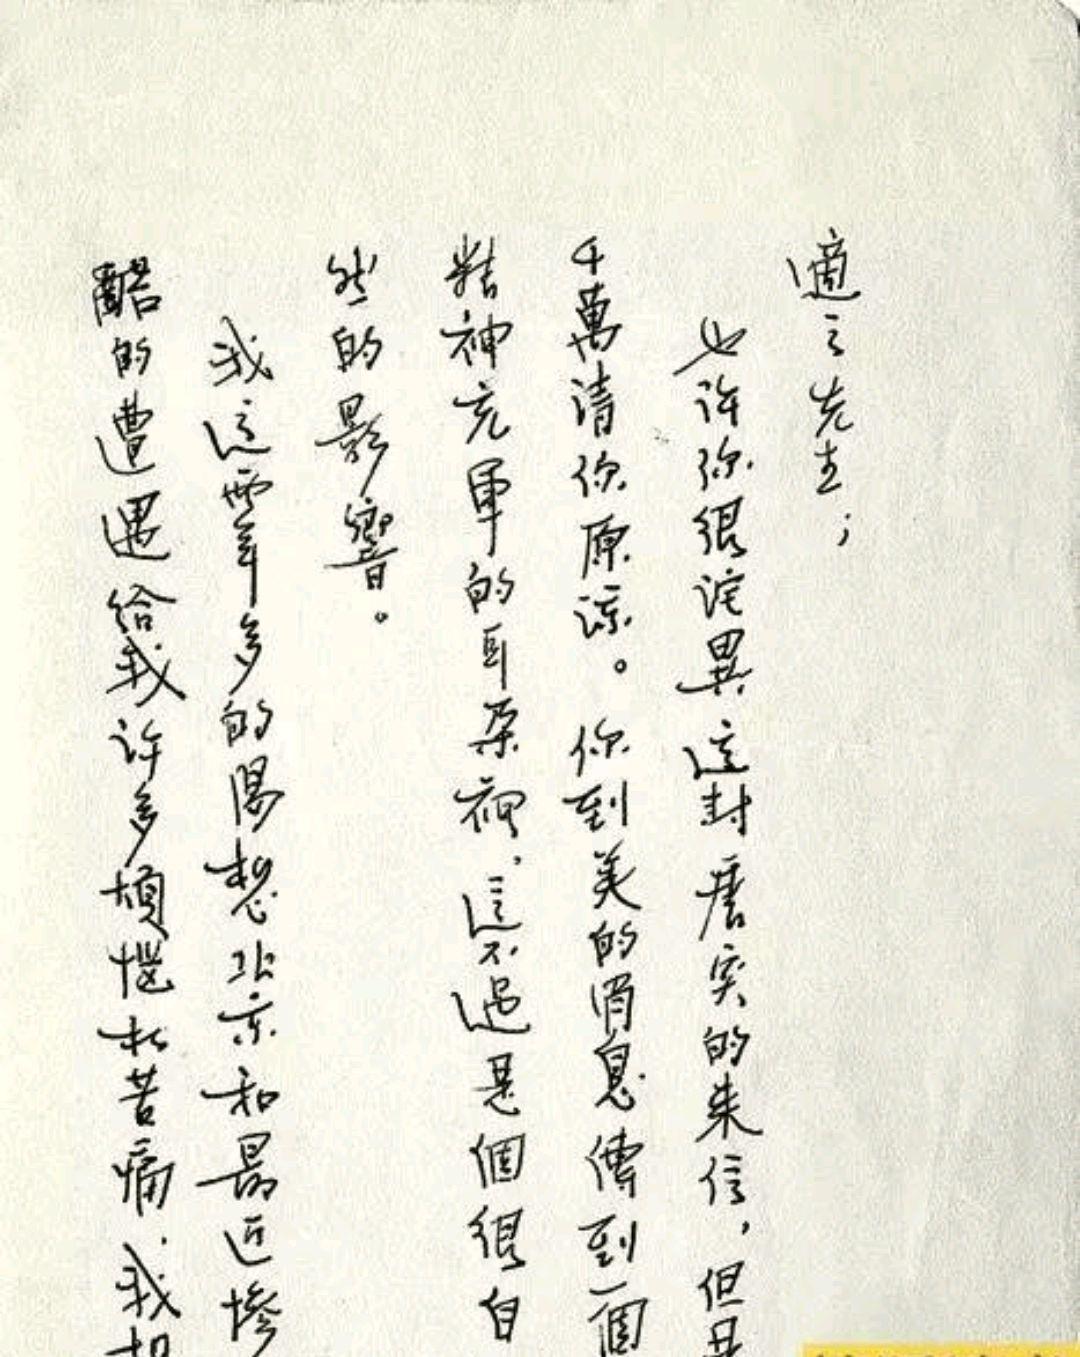 適之先生；
也許你很詫異這封唐突的來信，但是
千萬清你原諒。你到美的消息傳到一個
精神充軍的耳朵裡，這不過是個很自
然的影響。
我這兩年多的渴想北京和最近慘
酷的遭遇給我許多煩惱和苦痛．我想